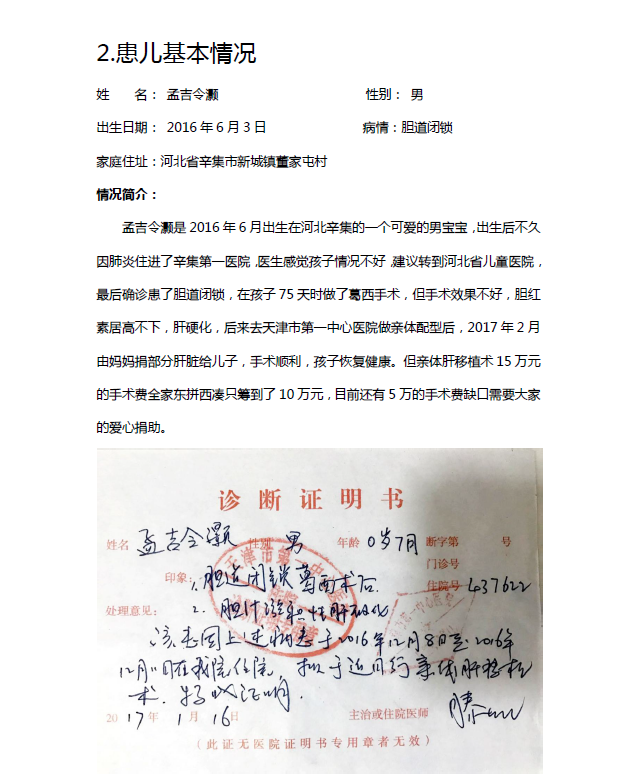 2.患儿基本情况
姓 名： 孟吉令灏 性别： 男
出生日期： 2016年6月3日 病情：胆道闭锁
家庭住址：河北省辛集市新城镇董家屯村
情况简介：
孟吉令灏是2016年6月出生在河北辛集的一个可爱的男宝宝，出生后不久
因肺炎住进了辛集第一医院，医生感觉孩子情况不好，建议转到河北省儿童医院，
最后确诊患了胆道闭锁，在孩子75天时做了葛西手术，但手术效果不好，胆红
素居高不下，肝硬化，后来去天津市第一中心医院做亲体配型后，2017年2月
由妈妈捐部分肝脏给儿子，手术顺利，孩子恢复健康。但亲体肝移植术15万元
的手术费全家东拼西凑只筹到了10万元，目前还有5万的手术费缺口需要大家
的爱心捐助。
诊断证明书
姓名 孟吉令灏 性别 男 年龄 0岁7月 断字第 号
门诊号
印象： 1. 胆道闭锁葛西术后 住院号 437622
处理意见： 2. 胆汁淤积性肝硬化
该患因上述病患于2016年12月8日至2016年
12月11日在我院住院，拟于近日行亲体肝移植
术．特此证明．
2017年1月16日 主治或住院医师
（此证无医院证明书专用章者无效）